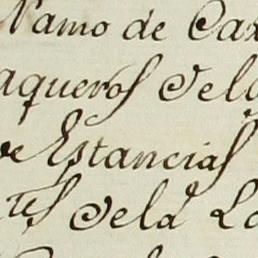 Ramo de Cax
aqueros dela
ve Estancias
tes dela Lo